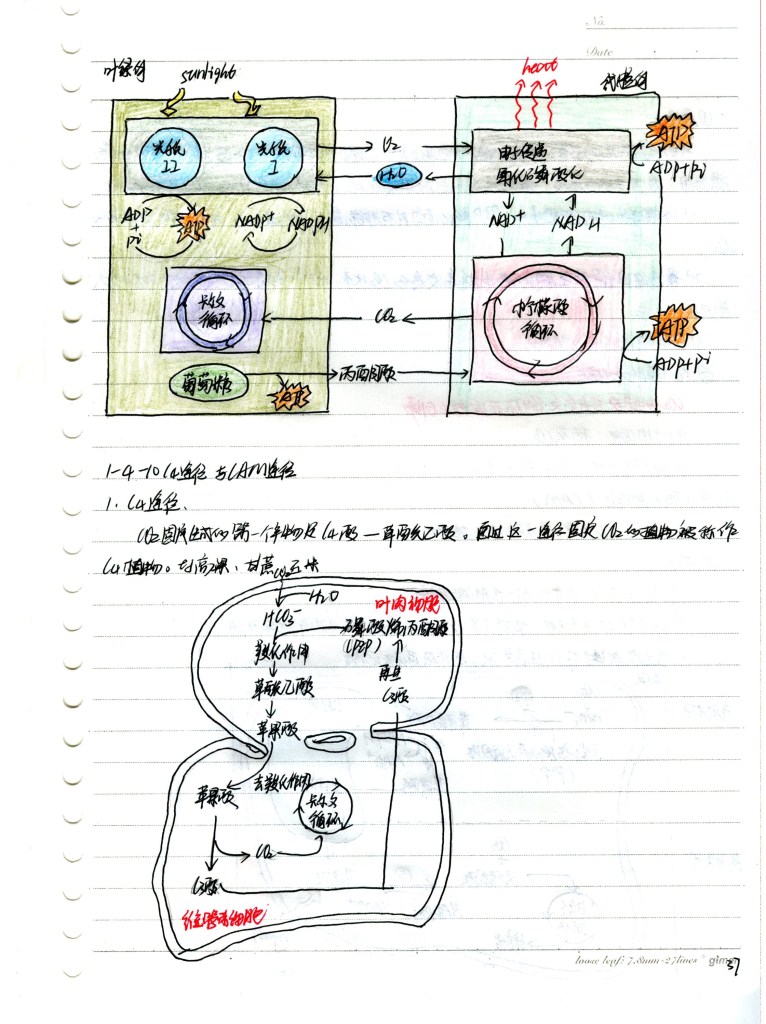 No
Date
叶绿体
sunlight
heat
线粒体
光系II
光系I
O₂
H₂O
电子传递
氧化磷酸化
ATP
ADP+Pi
ADP
+
Pi
ATP
NADP+
NADPH
NAD+
NADH
卡尔文
循环
CO₂
柠檬酸
循环
ATP
ADP+Pi
葡萄糖
ATP
丙酮酸
1-4-10 C4途径与CAM途径
1. C4途径.
CO₂固定生成的第一个产物是C4酸—草酰乙酸。通过这一途径固定CO₂的植物被称作
C4植物。如高粱、甘蔗、玉米
CO₂
H₂O
HCO₃⁻
叶肉细胞
磷酸烯醇丙酮酸
(PEP)
羧化作用
草酰乙酸
再生
C3酸
苹果酸
苹果酸
去羧化作用
卡尔文
循环
CO₂
C3酸
维管鞘细胞
loose leaf: 7.8mm-27lines
37